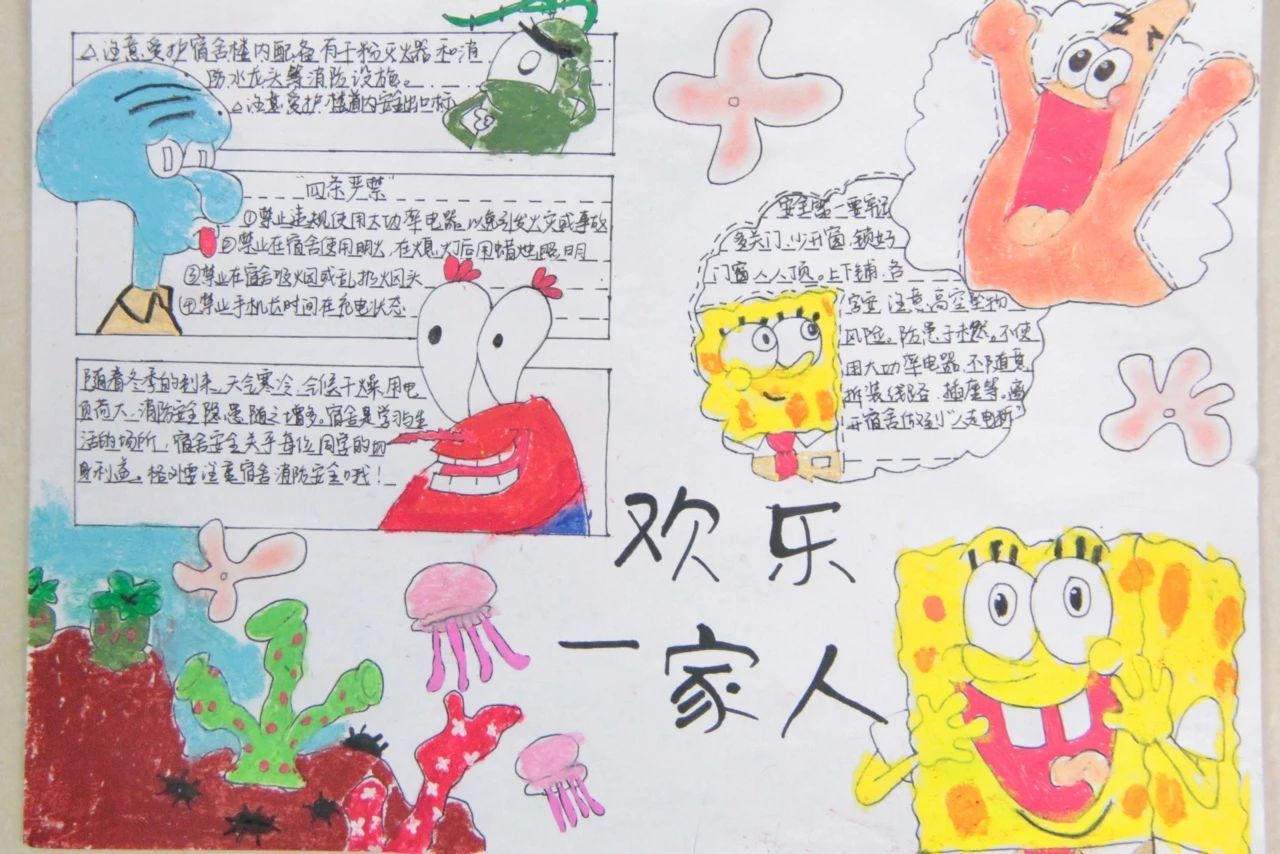 △注意爱护宿舍楼内配备有干粉灭火器和消
防水龙头等消防设施。
△注意爱护楼道内安全出口标
"四条严禁"
①禁止违规使用大功率电器,以免引发火灾或事故
②禁止在宿舍使用明火,在熄灯后用蜡烛照明
③禁止在宿舍吸烟或乱扔烟头
④禁止手机长时间在充电状态
随着冬季的到来,天气寒冷,气候干燥,用电
负荷大,消防安全隐患随之增多。宿舍是学习生
活的场所,宿舍安全关乎每位同学的切
身利益。格外要注意宿舍消防安全哦!
安全第一要牢记
多关门,少开窗,锁好
门窗人人顶。上下铺,各
安 注意高空坠物
风险。防患于未燃。不使
用大功率电器,不随意
拆装线路、插座等。离
开宿舍做到"人走电断"
欢乐
一家人